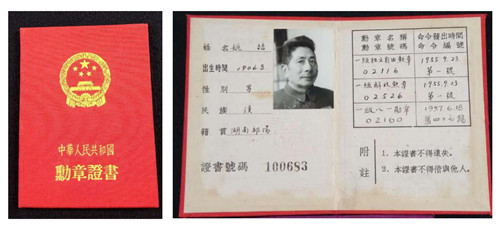 中華人民共和國
勳章證書
姓名 姚喆
出生時間 1906年
性別 男
民族 漢
籍貫 湖南邵陽
證書號碼 100683
勳章名稱 命令發出時間
勳章號碼 命令編號
一級獨立自由勳章 1955.9.23
02116 第一號
一級解放勳章 1955.9.23
02526 第一號
一級八一勳章 1957.6.18
02160
附註
1. 本證書不得遺失。
2. 本證書不得借與他人。